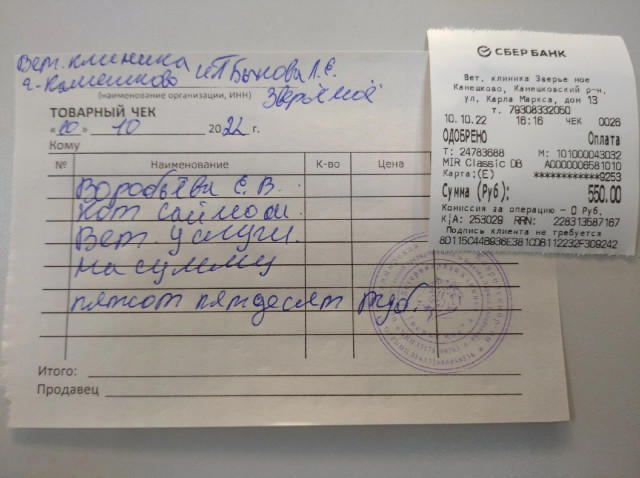 Вет. клиника
г. Камешково ИП Быкова Л.С.
Зверьё моё
(наименование организации, ИНН)
ТОВАРНЫЙ ЧЕК
«10» 10 2022 г.
Кому
№ Наименование К-во Цена
Воробьёва С. В.
Кот Саймон
Вет. услуги
на сумму
пятсот пятдесят руб.
Итого:
Продавец
СБЕРБАНК
Вет. клиника Зверье мое
Камешково, Камешковский р-н,
ул. Карла Маркса, дом 13
т. 79308332060
10.10.22 16:16 ЧЕК 0026
ОДОБРЕНО Оплата
Т: 24783688 М: 101000043032
MIR Classic DB A0000006581010
Карта:(E) ************9253
Сумма (Руб): 550.00
Комиссия за операцию - 0 Руб.
К/А: 253029 RRN: 228313587167
Подпись клиента не требуется
8D115C44B936E381CDB112232F309242